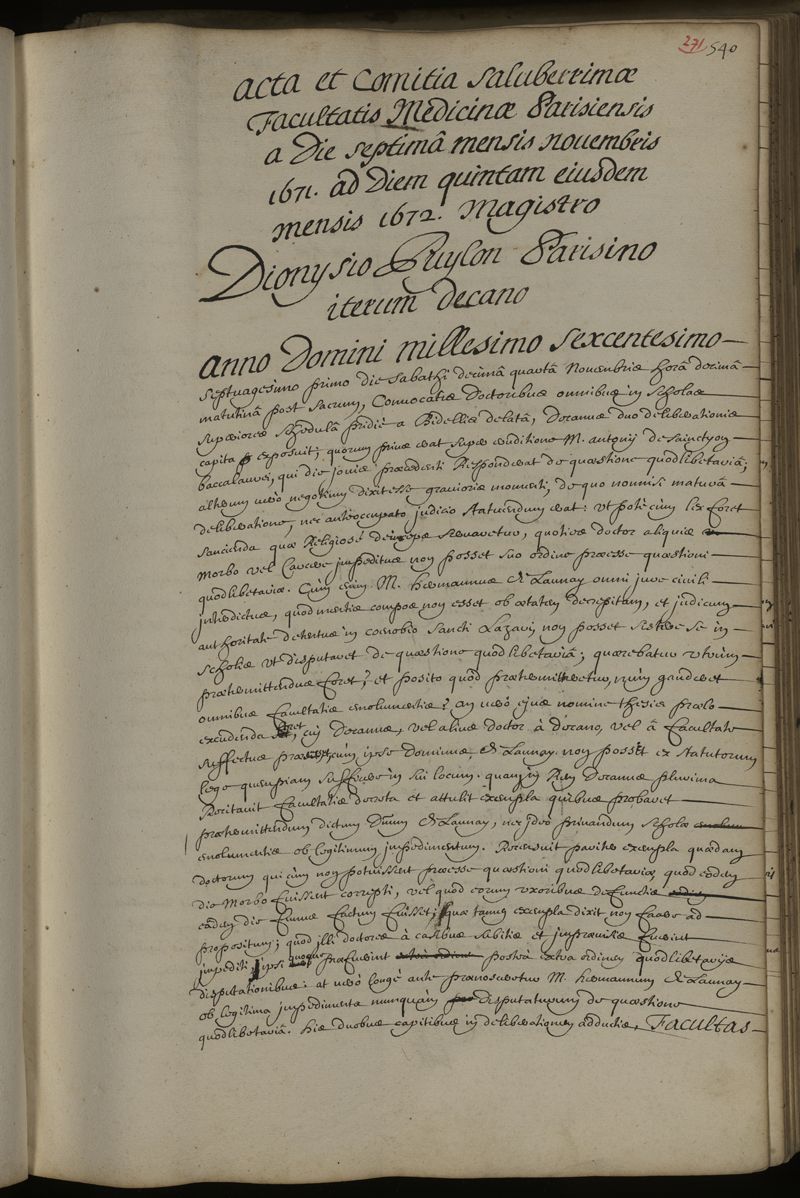 271 540
acta et comitia saluberrimæ
Facultatis Medicinæ Parisiensis
a Die septimâ mensis novembris
1671. ad Diem quintam eiusdem
mensis 1672. Magistro
Dionysio Puylon Parisino
iterum decano
anno Domini millesimo sexcentesimo
septuagesimo primo die sabathi decimâ quartâ Novembris horâ decimâ
matutinâ post sacrum, Convocatis Doctoribus omnibus in scholas
superiores schedulâ pridiè a Bidellis delatâ, Decanus duo deliberationis
capita exposuit; quorum prius erat super conditione M. antonij de Sainctyon
baccalaurei, qui die jovis præcedenti Responderat de quæstione quodlibetariâ;
alterum verò negotium dixit esse gravioris momenti, de quo nonnisi maturâ
deliberatione, nec anteoccupato judicio statuendum erat: ut potè cùm lex foret
sancienda quæ Religiosè deinceps servaretur, quoties doctor aliquis
morbo vel carcere impeditus non posset suo ordine præesse quæstioni
quodlibetariæ. Cùm enim M. hermannus de Launay omni jure civili
interdictus, quod mentis compos non esset ob ætatem decrepitam, et judicum
authoritate detentus in cœnobio sancti Lazari, non posset sistere se in
scholis ut disputaret de quæstione quodlibetariâ; quærebatur utrùm
prætermittendus foret? et posito quod prætermitteretur, num gauderet
omnibus facultatis emolumentis? an verò ejus nomine thesis prælo
excudenda foret, cui Decanus, vel alius doctor à decano, vel â facultate
suffectus præesset, cùm ipse dominus de Launay non posset ex statutorum
lege quempiam sufficere in sui locum. quam in Rem Decanus plurima
Recitavit facultatis decreta et attulit exempla quibus probaret
prætermittendum dictum Dnum de Launay, nec ideò privandum scholæ
emolumentis ob legitimum impedimentum. Recensuit pariter exempla quædam
doctorum qui cùm non potuissent præesse quæstioni quodlibetariæ, quod eâdem
die morbo fuissent correpti, vel quod eorum uxoribus defunctis
eâdem die funus factum fuisset; quæ tamen exempla dixit non facere ad
propositum; quod illi doctores à casibus subitis et improvisis fuerint
impediti, ipsi quoque præfuerint posteà extra ordinem quodlibetarijs
disputationibus: at verò longè ante prænosceretur M. hermannum de Launay
ob legitima impedimenta nunquam disputaturum de quæstione
quodlibetariâ. his duobus capitibus in deliberationem adductis, Facultas